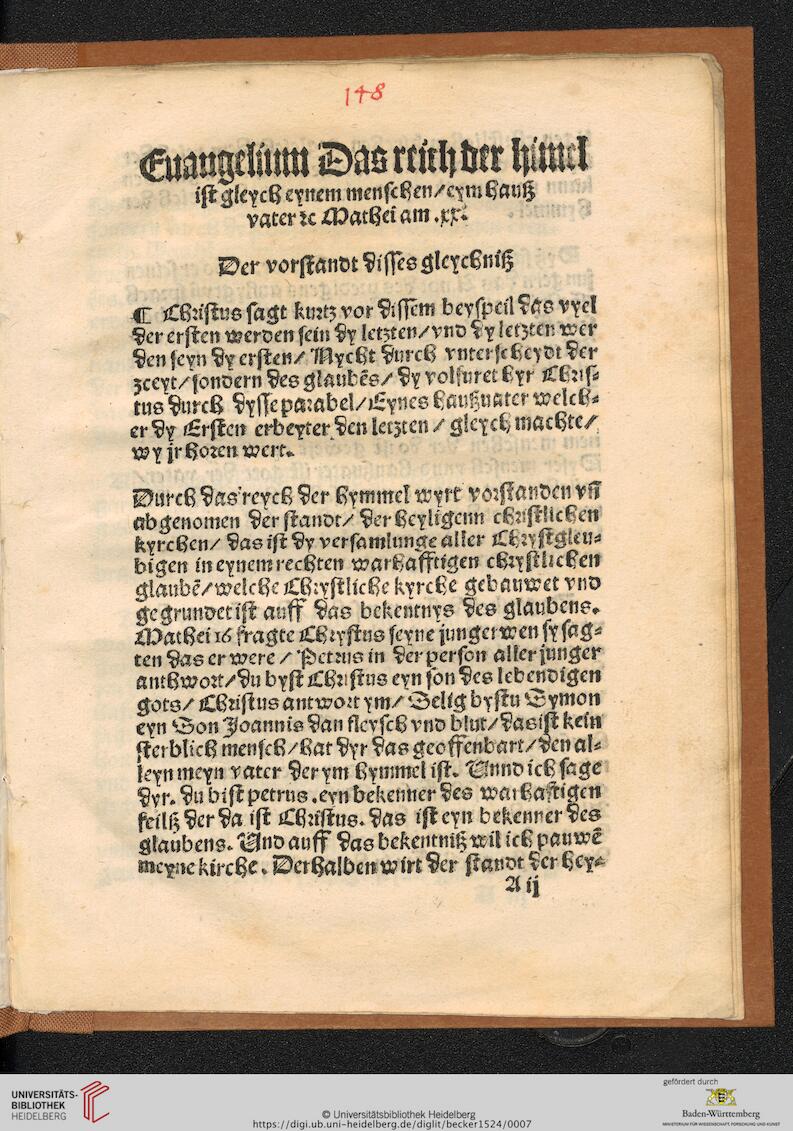 148
Euangelium Das reich der himel
ist gleych eynem menschen / eym hauß
vater ꝛc Mathei am .xx.
Der vorstandt disses gleychniß
¶ Christus sagt kurtz vor dissem beyspeil das vyel
der ersten werden sein dy letzten / vnd dy letzten wer
den seyn dy ersten / Nycht durch vnterscheydt der
zceyt / sondern des glaubẽs / dy volfuret hyr Chris⸗
tus durch dysse parabel / Eynes haußuater welch⸗
er dy Ersten erbeyter den letzten / gleych machte /
wy jr horen wert.
Durch das reych der hymmel wyrt vorstanden vñ
abgenomen der standt / der heyligenn christlichen
kyrchen / das ist dy versamlunge aller Chrystgleu⸗
bigen in eynem rechten warhafftigen chrystlichen
glaubẽ / welche Chrystliche kyrche gebauwet vnd
gegrundet ist auff das bekentnys des glaubens.
Mathei 16 fragte Chrystus seyne junger wen sy sag⸗
ten das er were / Petrus in der person aller junger
anthwort / du byst Christus eyn son des lebendigen
gots / Christus antwort ym / Selig bystu Symon
eyn Son Joannis dan fleysch vnd blut / das ist kein
sterblich mensch / hat dyr das geoffenbart / den al⸗
leyn meyn vater der ym hymmel ist. Unnd ich sage
dyr. du bist petrus .eyn bekenner des warhaftigen
felliß der da ist Christus. das ist eyn bekenner des
glaubens. Und auff das bekentniß wil ich pauwẽ
meyne kirche. Derhalben wirt der standt der hey⸗
A ij
UNIVERSITÄTS-
BIBLIOTHEK
HEIDELBERG
© Universitätsbibliothek Heidelberg
https://digi.ub.uni-heidelberg.de/diglit/becker1524/0007
gefördert durch
Baden-Württemberg
MINISTERIUM FÜR WISSENSCHAFT, FORSCHUNG UND KUNST